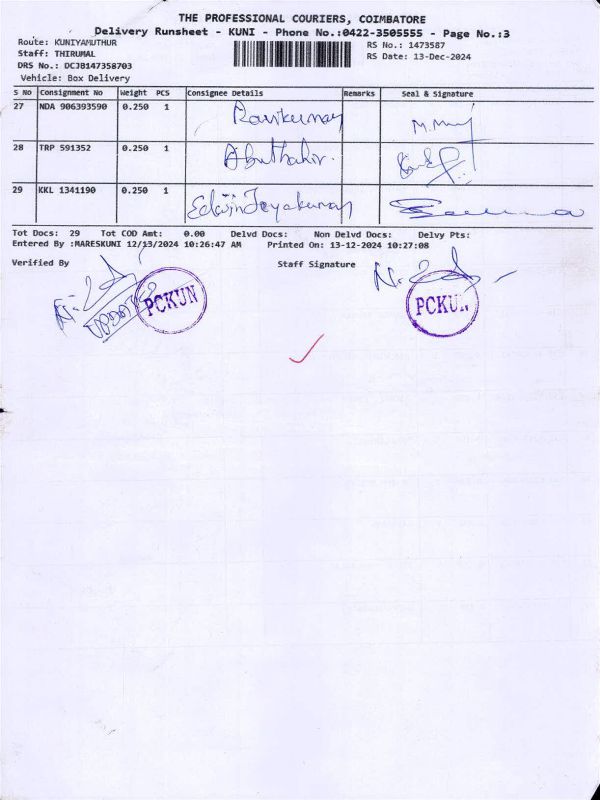 THE PROFESSIONAL COURIERS, COIMBATORE
Delivery Runsheet - KUNI - Phone No.:0422-3505555 - Page No.:3
Route: KUNIYAMUTHUR
Staff: THIRUMAL
DRS No.: DCJB147358703
Vehicle: Box Delivery
RS No.: 1473587
RS Date: 13-Dec-2024
S No Consignment No Weight PCS Consignee Details Remarks Seal & Signature
27 NDA 906393590 0.250 1 Ravikumar
28 TRP 591352 0.250 1 Abuthahir.
29 KKL 1341190 0.250 1 Edwin Jeyakumar
Tot Docs: 29 Tot COD Amt: 0.00 Delvd Docs: Non Delvd Docs: Delvy Pts:
Entered By :MARESKUNI 12/13/2024 10:26:47 AM Printed On: 13-12-2024 10:27:08
Verified By Staff Signature
PCKUN
PCKUN